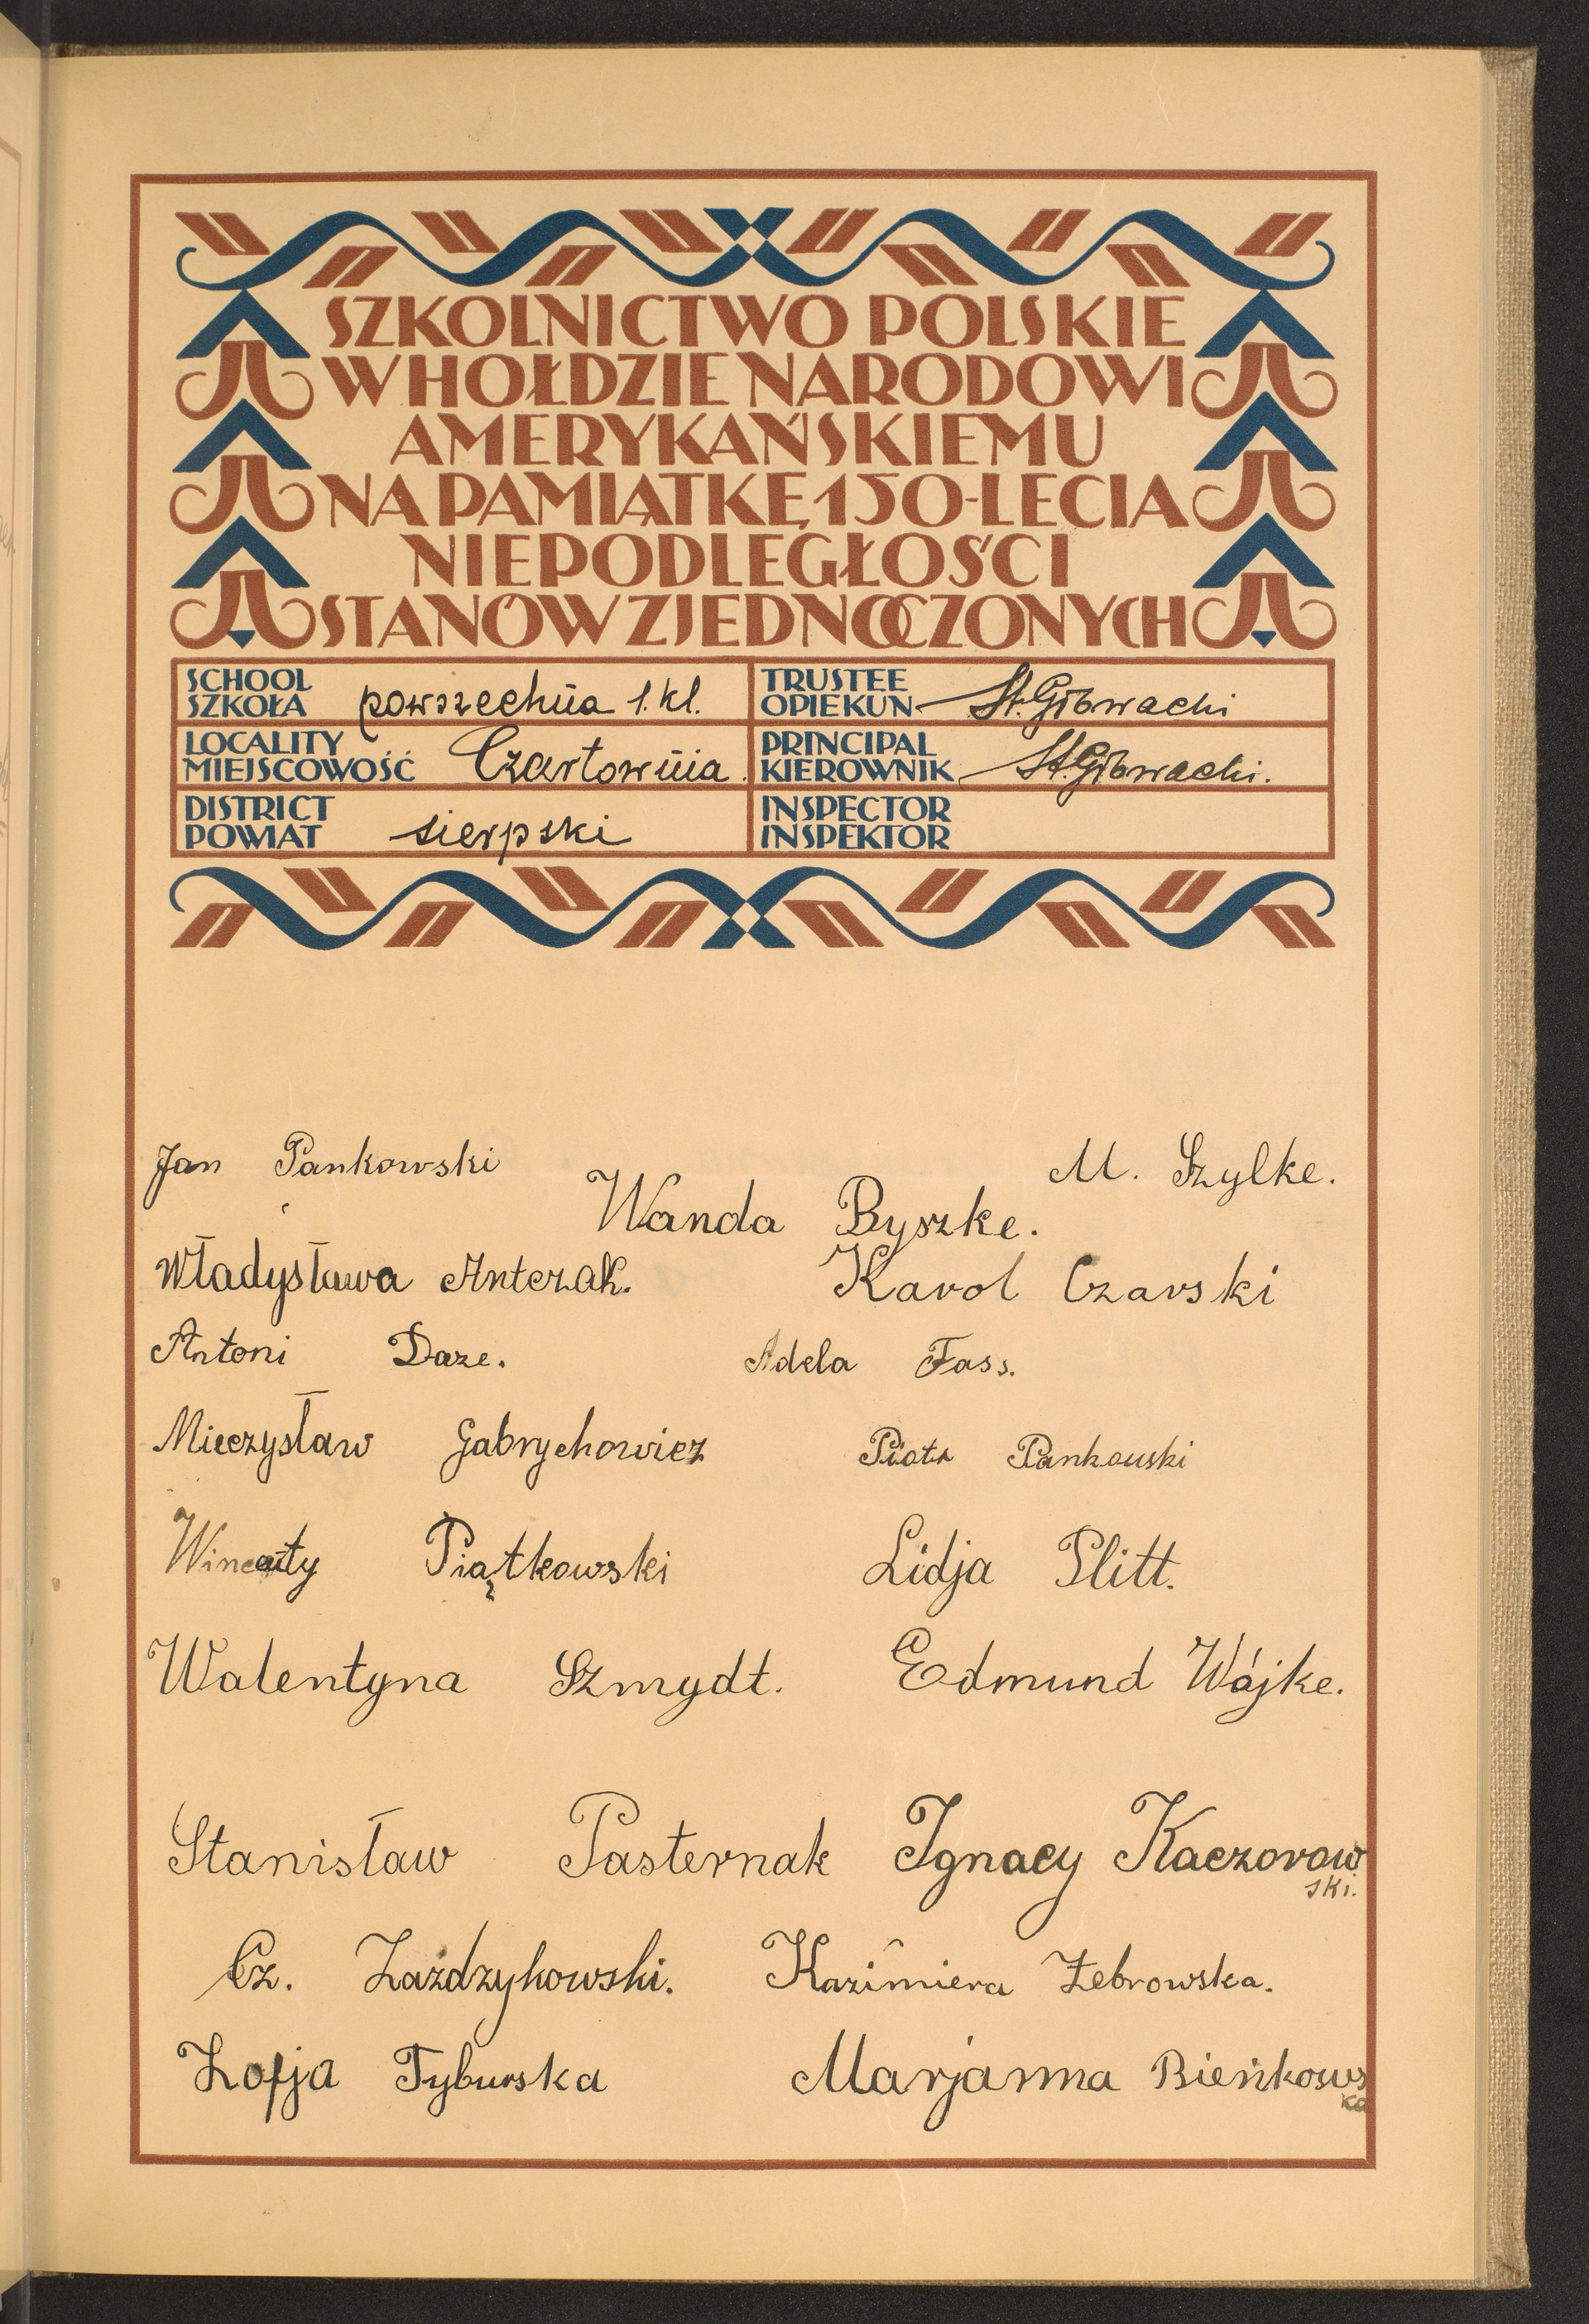 SZKOLNICTWO POLSKIE
W HOŁDZIE NARODOWI
AMERYKAŃSKIEMU
NA PAMIĄTKĘ 150-LECIA
NIEPODLEGŁOŚCI
STANÓW ZJEDNOCZONYCH
SCHOOL
SZKOŁA powszechna 1. kl.
TRUSTEE
OPIEKUN St. Głowacki
LOCALITY
MIEJSCOWOŚĆ Czartownia.
PRINCIPAL
KIEROWNIK St. Głowacki.
DISTRICT
POWIAT sierpski
INSPECTOR
INSPEKTOR
Jan Pankowski
M. Szylke.
Wanda Byszke.
Władysława Antczak.
Karol Czarski
Antoni Daze.
Adela Fass.
Mieczysław Gabrychowicz
Piotr Pankouski
Wincenty Piątkowski
Lidja Plitt.
Walentyna Szmydt.
Edmund Wójke.
Stanisław Pasternak
Ignacy Kaczorow
ski.
Cz. Zazdzykowski.
Kazimiera Żebrowska.
Zofja Tyburska
Marjanna Bieńkows
ka